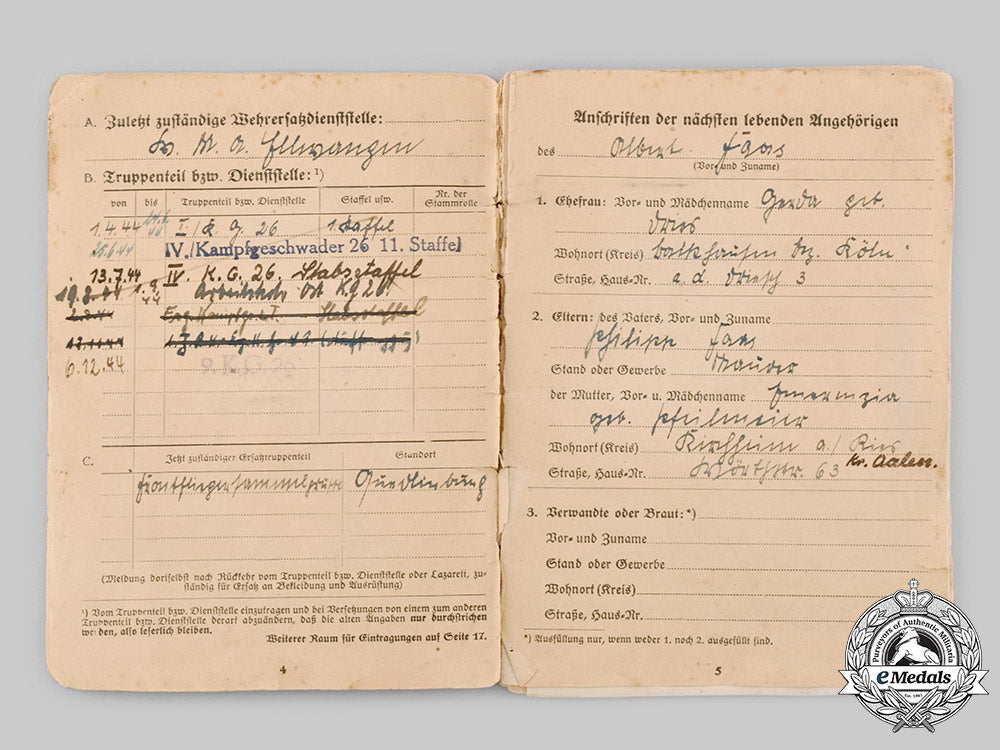 A. Zuletzt zuständige Wehrersatzdienststelle:
W. M. A. Ellwangen
B. Truppenteil bzw. Dienststelle:¹)
von bis Truppenteil bzw. Dienststelle Staffel usw. Nr. der Stammrolle
1.4.44 I./K. G. 26 1. Staffel
IV./Kampfgeschwader 26 11. Staffel
13.7.44 IV. K. G. 26. Stabsstaffel
19.8.44 1.9.44 K.G 26
6.12.44
C. Jetzt zuständiger Ersatztruppenteil Standort
Frontfliegersammelgruppe Quedlinburg
(Meldung dortselbst nach Rückkehr vom Truppenteil bzw. Dienststelle oder Lazarett, zu-
ständig für Ersatz an Bekleidung und Ausrüstung)
¹) Vom Truppenteil bzw. Dienststelle einzutragen und bei Versetzungen von einem zum anderen
Truppenteil bzw. Dienststelle derart abzuändern, daß die alten Angaben nur durchstrichen
werden, also leserlich bleiben.
Weiterer Raum für Eintragungen auf Seite 17.
4
Anschriften der nächsten lebenden Angehörigen
des Albert Faas
(Vor- und Zuname)
1. Ehefrau: Vor- und Mädchenname Gerda geb.
Dries
Wohnort (Kreis) Balkhausen Bz. Köln
Straße, Haus-Nr. a. d. Driesch 3
2. Eltern: des Vaters, Vor- und Zuname
Philipp Faas
Stand oder Gewerbe Maurer
der Mutter, Vor- u. Mädchenname Emerenzia
geb.
Wohnort (Kreis) Kirchheim a/ Ries
Kr. Aalen.
Straße, Haus-Nr. 63
3. Verwandte oder Braut:*)
Vor- und Zuname
Stand oder Gewerbe
Wohnort (Kreis)
Straße, Haus-Nr.
*) Ausfüllung nur, wenn weder 1. noch 2. ausgefüllt sind.
5
Purveyors of Authentic Militaria
eMedals